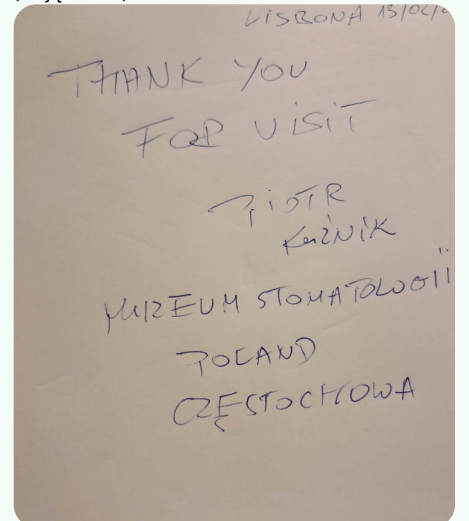 LISBONA 13/02/
THANK YOU
FOR VISIT
PIOTR
KUŹNIK
MUZEUM STOMATOLOGII
POLAND
CZĘSTOCHOWA